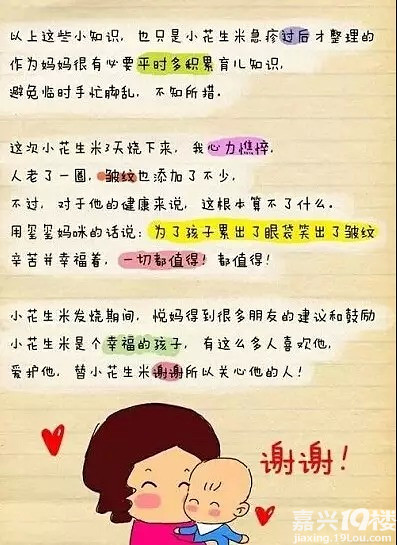 以上这些小知识，也只是小花生米急疹过后才整理的
作为妈妈很有必要平时多积累育儿知识，
避免临时手忙脚乱，不知所措．
这次小花生米3天烧下来，我心力憔悴，
人老了一圈，皱纹也添加了不少，
不过，对于他的健康来说，这根本算不了什么．
用玺玺妈咪的话说：为了孩子累出了眼袋笑出了皱纹
辛苦并幸福着，一切都值得！都值得！
小花生米发烧期间，悦妈得到很多朋友的建议和鼓励
小花生米是个幸福的孩子，有这么多人喜欢他，
爱护他，替小花生米谢谢所以关心他的人！
谢谢！
嘉兴19楼
jiaxing.19Lou.com